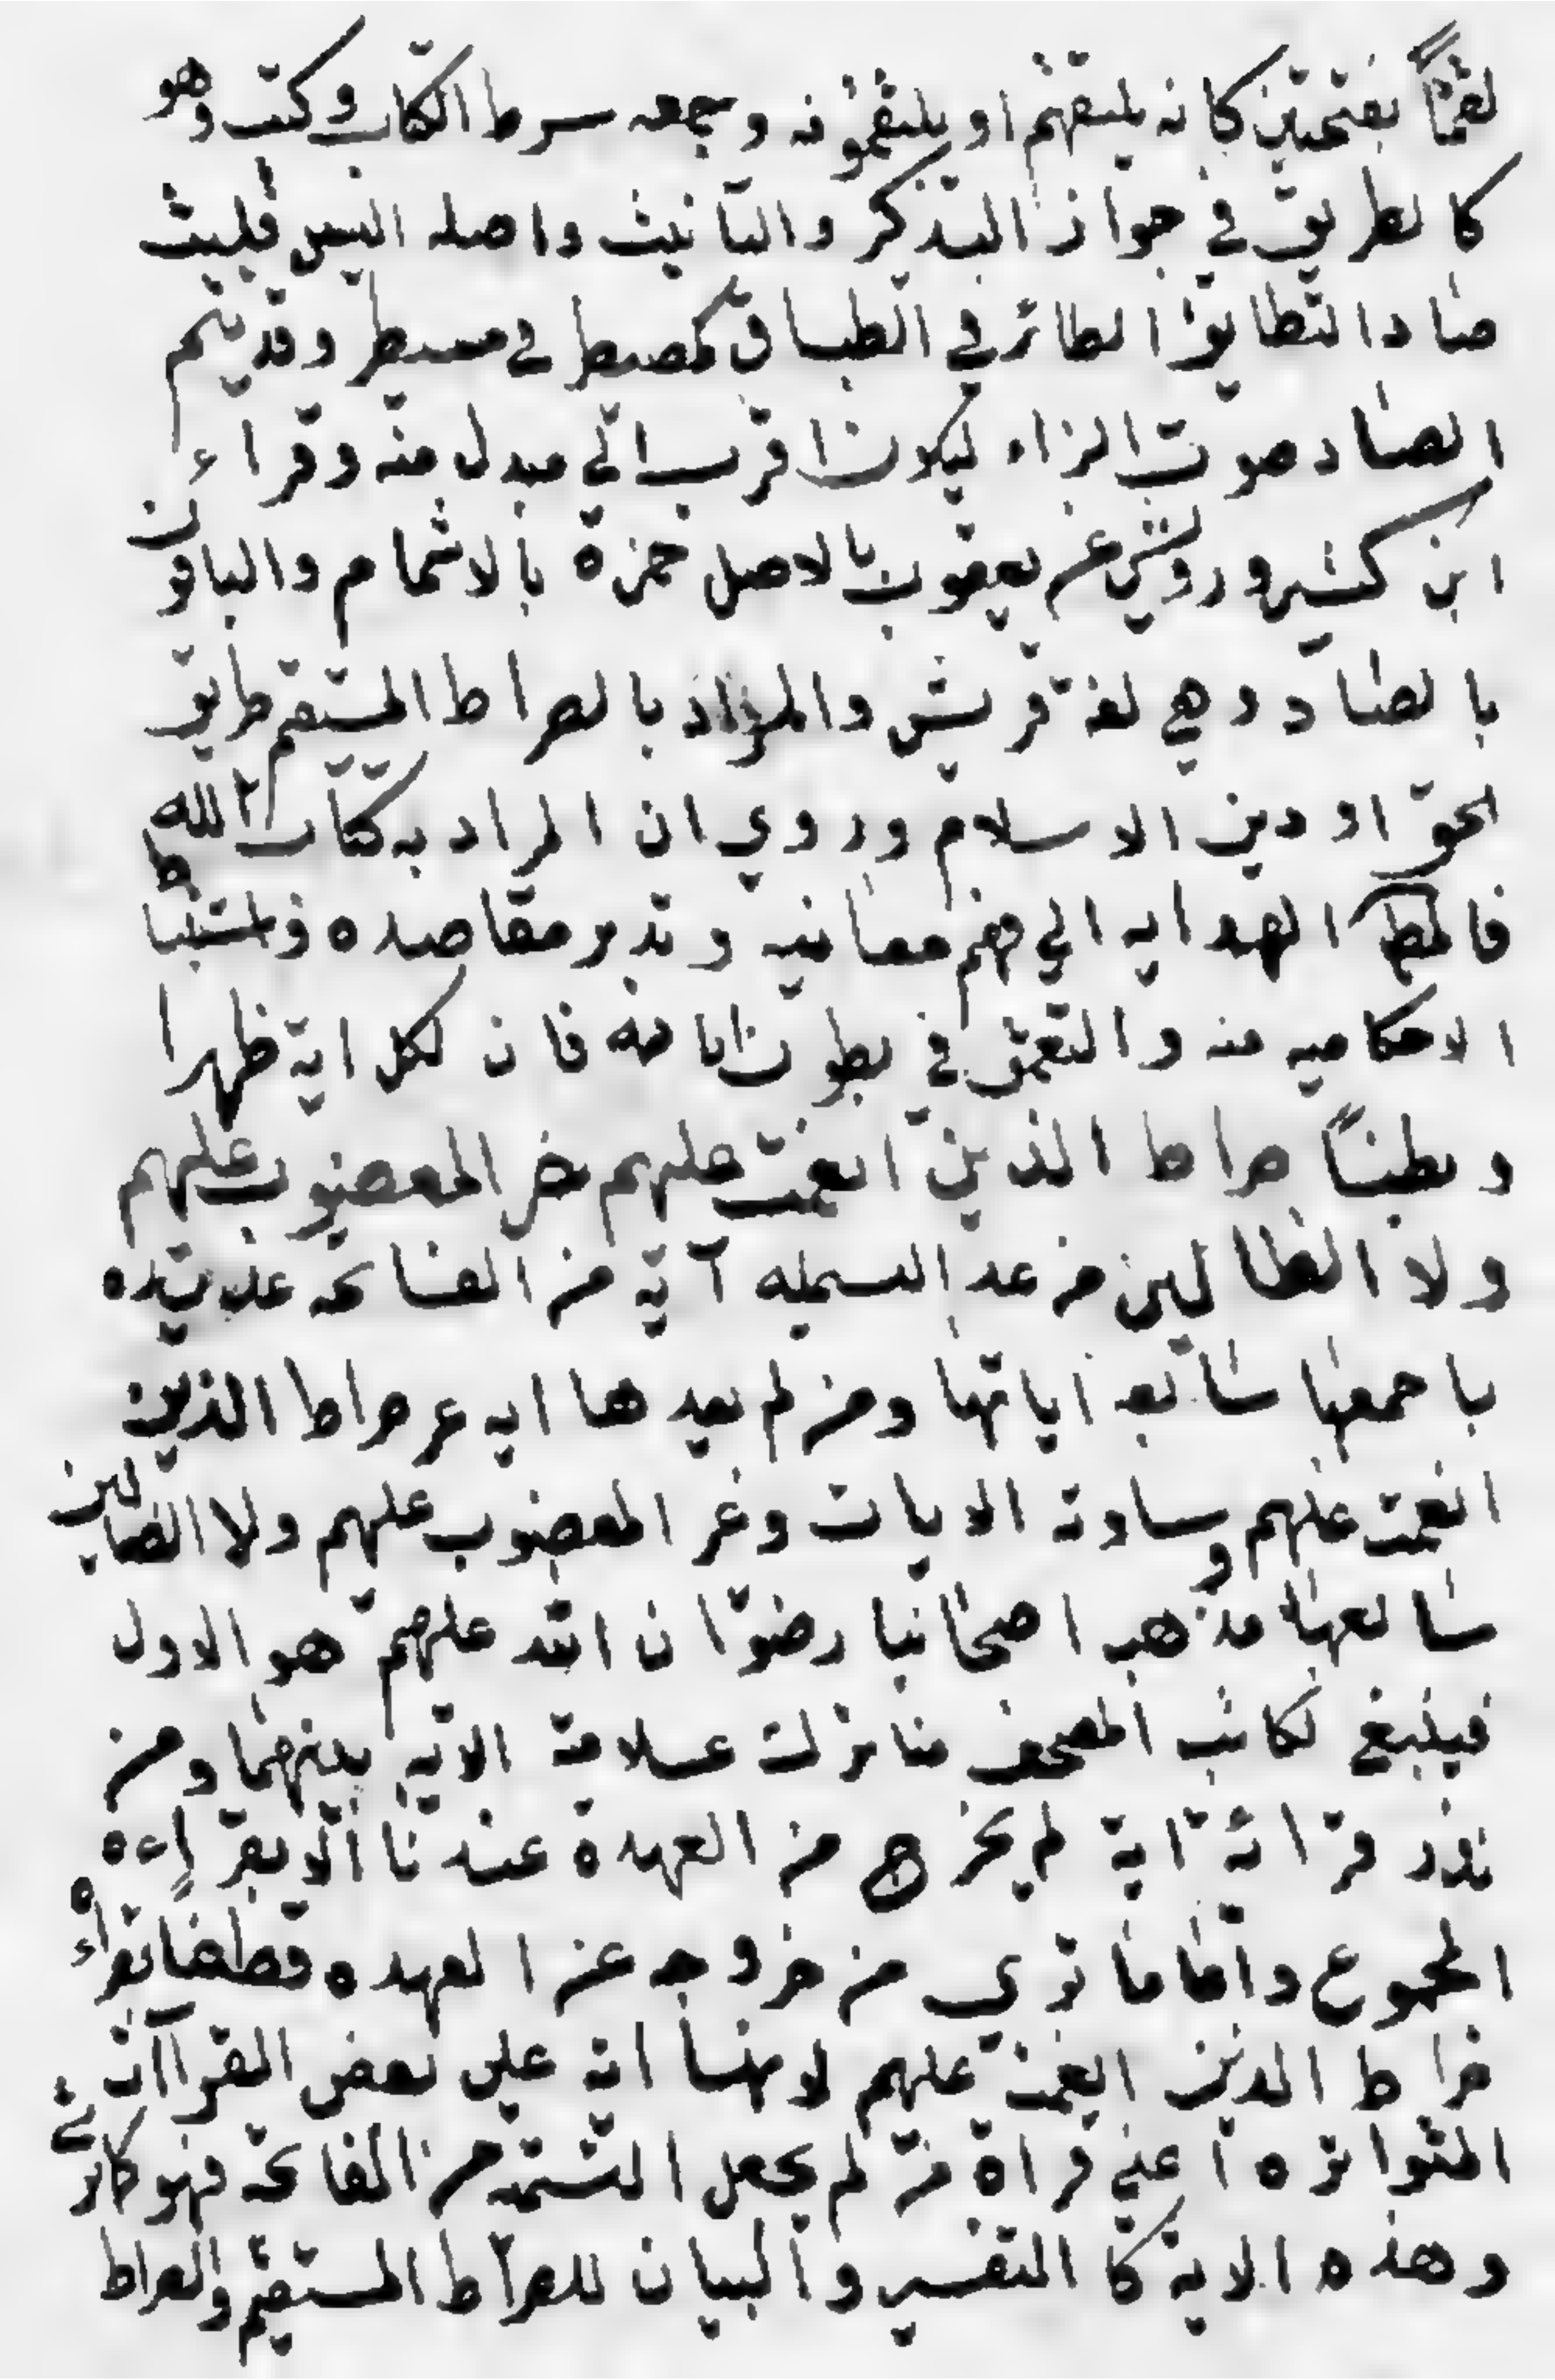 لقماً بفتحتين كانه يلتقمهم او يلتقمونه وجمعه سرط ككتاب وكتب وهو
كالطريق في جواز التذكير والتانيث واصله السين قلبت
صاد التطابق الطائر في الطباق كمصيطر في مسيطر وقد يشم
الصاد صوت الزاء ليكون اقرب الي مبدل منه وقراء
ابن كثير ورويش عن يعقوب بالاصل حمزة بالاشمام والباقون
بالصاد وهي لغة قريش والمراد بالصراط المستقيم طريق
الحق او دين الاسلام وروي ان المراد به كتاب الله
فالمط الهدايه الي فهم معانيه وتدبر مقاصده واستنباط
الاحكاميه منه والتعمق في بطون اياته فان لكل اية ظهرا
وبطناً صراط الذين انعمت عليهم غير المغضوب عليهم
ولا الظالين من عد البسمله آية من الفاتحه عد هذه
باجمعها سابعه اياتها ومن لم يعدها ايه عد صراط الذين
انعمت عليهم سادسة الايات وغير المغضوب عليهم ولا الضالين
سابعها ومذهب اصحابنا رضوان الله عليهم هو الاول
فينبغي لكاتب المصحف منا ترك علامة الايه بينهما ومن
نذر قرائة اية لم يخرج من العهدة عندنا الا بقراءه
المجموع واما ما تري من خروجه عن العهده قطعا بقراءه
صراط الذين انعمت عليهم لانها اية علي بعض القراآت
المتواتره اعني قراة من لم يجعل التسمه من الفاتحه فهو كاتري
وهذه الاية كالتفسير والبيان للصراط المستقيم والصراط